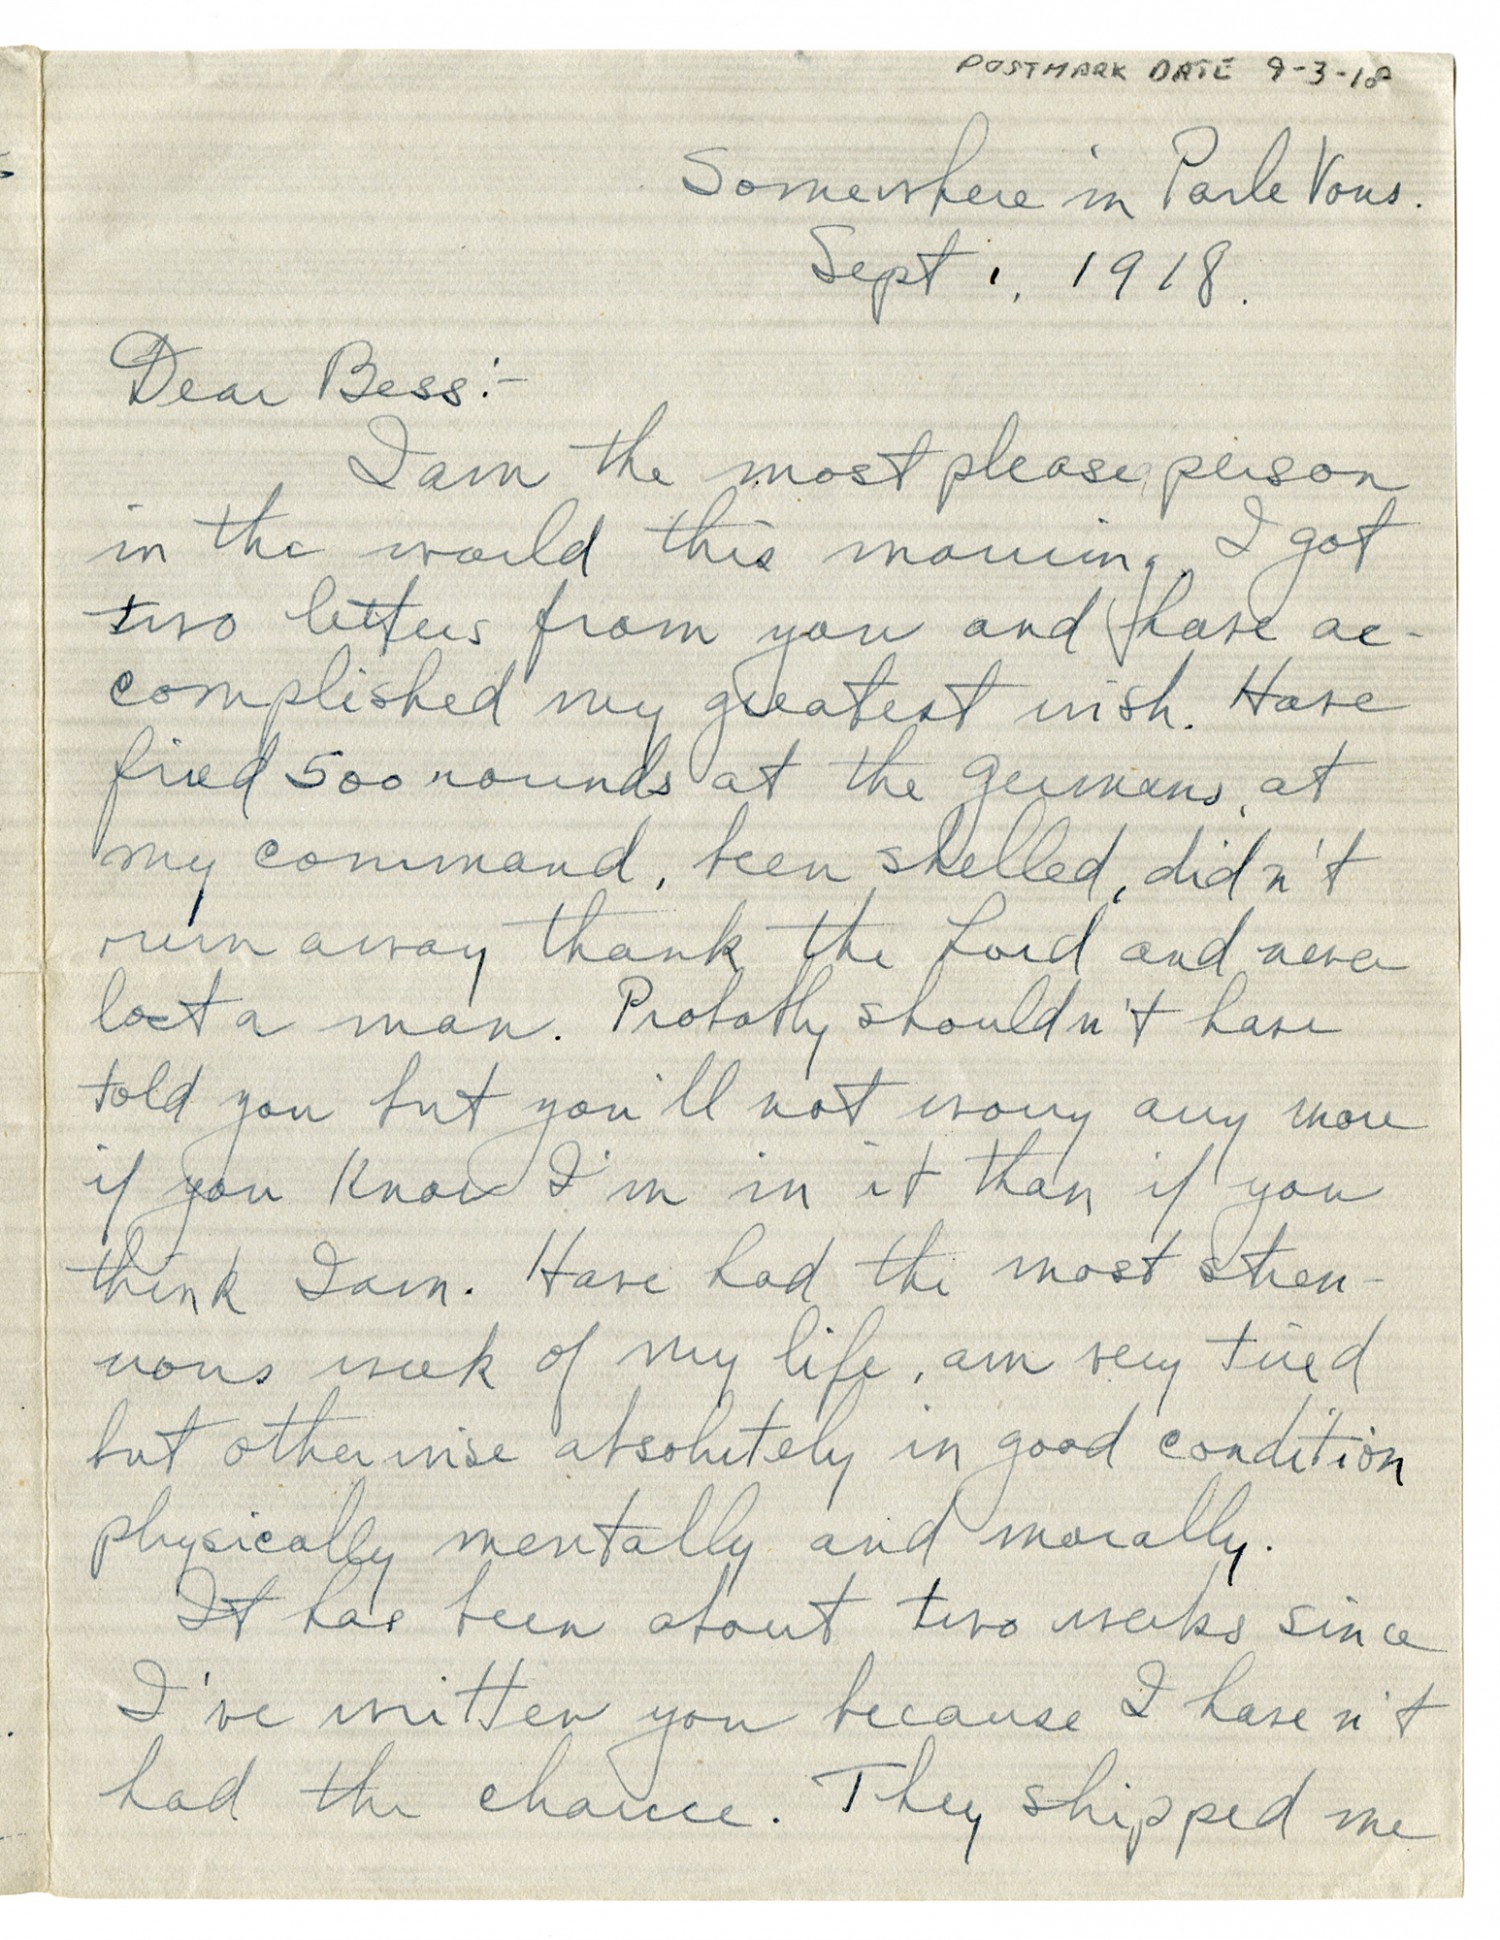 POSTMARK DATE 9-3-18
Somewhere in Parle Vous.
Sept 1, 1918.
Dear Bess:-
I am the most pleased person
in the world this morning. I got
two letters from you and have ac-
complished my greatest wish. Have
fired 500 rounds at the Germans, at
my command, been shelled, didn't
run away thank the Lord and never
lost a man. Probably shouldn't have
told you but you'll not worry any more
if you know I'm in it than if you
think I am. Have had the most stren-
uous work of my life, am very tired
but otherwise absolutely in good condition
physically mentally and morally.
It has been about two weeks since
I've written you because I haven't
had the chance. They shipped me